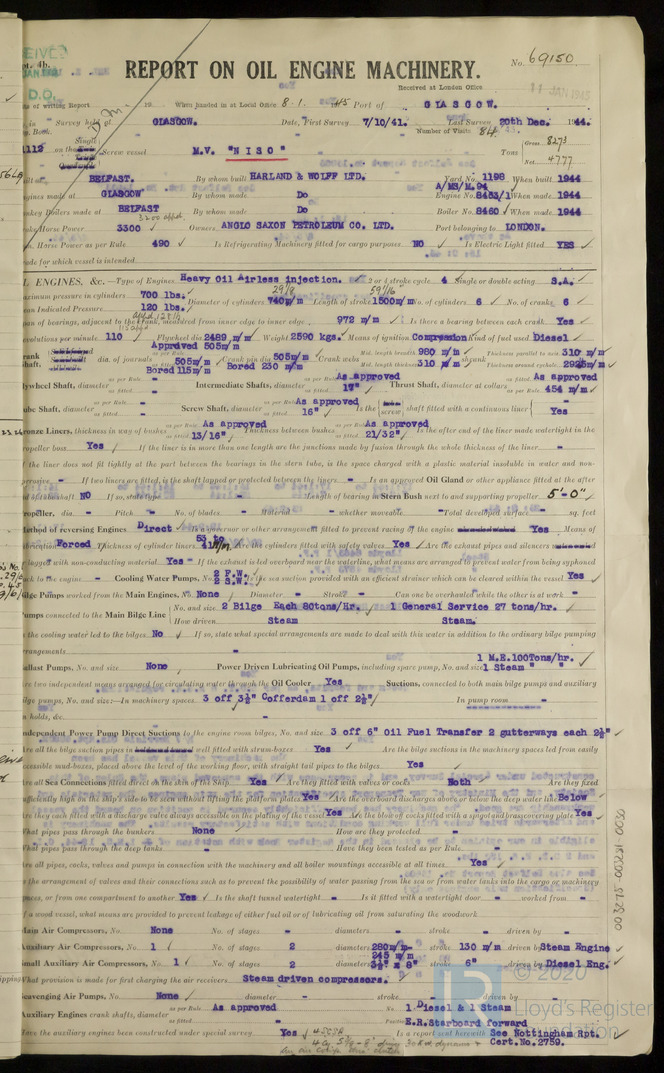 REPORT ON OIL ENGINE MACHINERY.
No. 69150
Received at London Office
11 JAN 1945
of writing Report 19 When handed in at Local Office 8.1.45 Port of GLASGOW.
Survey held at GLASGOW. Date, First Survey 7/10/41. Last Survey 20th Dec. 1944.
Book. Number of Visits 84
on the Single Screw vessel M.V. "NISO" Tons Gross 8273 Net 4777
Built at BELFAST. By whom built HARLAND & WOLFF LTD. Yard No. 1198 When built 1944
Engines made at GLASGOW By whom made Do Engine No. 8463/1 When made 1944
A/MS/M.94
Donkey Boilers made at BELFAST By whom made Do Boiler No. 8460 When made 1944
Brake Horse Power 3300 Owners ANGLO SAXON PETROLEUM CO. LTD. Port belonging to LONDON.
Horse Power as per Rule 490 Is Refrigerating Machinery fitted for cargo purposes NO Is Electric Light fitted YES
Trade for which vessel is intended
ENGINES, &c.—Type of Engines Heavy Oil Airless injection. 2 or 4 stroke cycle 4 Single or double acting S.A.
Maximum pressure in cylinders 700 lbs. Diameter of cylinders 740m/m Length of stroke 1500m/m No. of cylinders 6 No. of cranks 6
Mean Indicated Pressure 120 lbs.
Span of bearings, adjacent to the Crank, measured from inner edge to inner edge 972 m/m Is there a bearing between each crank Yes
Revolutions per minute 110 Flywheel dia 2489 m/m Weight 2590 kgs. Means of ignition Compression Kind of fuel used Diesel
Approved 505m/m
Crank Shaft, dia. of journals 505m/m Bored 115m/m Crank pin dia 505m/m Bored 230 m/m Crank webs Mid. length breadth 980 m/m Mid. length thickness 310 m/m shrunk Thickness parallel to axis 310 m/m Thickness around eyehole 292½m/m
Flywheel Shaft, diameter as per Rule - as fitted - Intermediate Shafts, diameter As approved 17" Thrust Shaft, diameter at collars As approved 454 m/m
Tube Shaft, diameter as per Rule - as fitted - Screw Shaft, diameter As approved 16" Is the screw shaft fitted with a continuous liner Yes
Bronze Liners, thickness in way of bushes As approved 13/16" Thickness between bushes As approved 21/32" Is the after end of the liner made watertight in the
propeller boss Yes If the liner is in more than one length are the junctions made by fusion through the whole thickness of the liner -
If the liner does not fit tightly at the part between the bearings in the stern tube, is the space charged with a plastic material insoluble in water and non-
corrosive - If two liners are fitted, is the shaft lapped or protected between the liners - Is an approved Oil Gland or other appliance fitted at the after
end of tube shaft NO If so, state type Length of bearing in Stern Bush next to and supporting propeller 5'-0"
Propeller, dia. - Pitch - No. of blades - Material - whether moveable - Total developed surface - sq. feet
Method of reversing Engines Direct Is a governor or other arrangement fitted to prevent racing of the engine Yes Means of
lubrication Forced Thickness of cylinder liners 53 to 41 m/m Are the cylinders fitted with safety valves Yes Are the exhaust pipes and silencers
lagged with non-conducting material Yes If the exhaust is led overboard near the waterline, what means are arranged to prevent water from being syphoned
back to the engine - Cooling Water Pumps, No. 2 F.W. 2 S.W. Is the sea suction provided with an efficient strainer which can be cleared within the vessel Yes
Bilge Pumps worked from the Main Engines, No. None Diameter - Stroke - Can one be overhauled while the other is at work -
Pumps connected to the Main Bilge Line No. and size 2 Bilge Each 80tons/Hr. 1 General Service 27 tons/hr.
How driven Steam Steam.
Is the cooling water led to the bilges No If so, state what special arrangements are made to deal with this water in addition to the ordinary bilge pumping
arrangements
Ballast Pumps, No. and size None Power Driven Lubricating Oil Pumps, including spare pump, No. and size 1 M.E. 100Tons/hr. 1 Steam "
Are two independent means arranged for circulating water through the Oil Cooler Yes Suctions, connected to both main bilge pumps and auxiliary
bilge pumps, No. and size:—In machinery spaces 3 off 3½" Cofferdam 1 off 2½" In pump room -
In holds, &c. -
Independent Power Pump Direct Suctions to the engine room bilges, No. and size 3 off 6" Oil Fuel Transfer 2 gutterways each 2½"
Are all the bilge suction pipes in well fitted with strum-boxes Yes Are the bilge suctions in the machinery spaces led from easily
accessible mud-boxes, placed above the level of the working floor, with straight tail pipes to the bilges Yes
Are all Sea Connections fitted direct on the skin of the ship Yes Are they fitted with valves or cocks Both Are they fixed
sufficiently high on the ship's side to be seen without lifting the platform plates Yes Are the overboard discharges above or below the deep water line Below
Are they each fitted with a discharge valve always accessible on the plating of the vessel Yes Are the blow off cocks fitted with a spigot and brass covering plate Yes
What pipes pass through the bunkers None How are they protected -
What pipes pass through the deep tanks - Have they been tested as per Rule -
Are all pipes, cocks, valves and pumps in connection with the machinery and all boiler mountings accessible at all times Yes
Is the arrangement of valves and their connections such as to prevent the possibility of water passing from the sea or from water tanks into the cargo or machinery
spaces, or from one compartment to another Yes Is the shaft tunnel watertight - Is it fitted with a watertight door - worked from -
If a wood vessel, what means are provided to prevent leakage of either fuel oil or of lubricating oil from saturating the woodwork
Main Air Compressors, No. None No. of stages - diameters - stroke - driven by -
Auxiliary Air Compressors, No. 1 No. of stages 2 diameters 280m/m 245 m/m stroke 130 m/m driven by Steam Engine
Small Auxiliary Air Compressors, No. 1 No. of stages 2 diameters 3½" x 8" stroke 6" driven by Diesel Eng.
What provision is made for first charging the air receivers Steam driven compressors.
Scavenging Air Pumps, No. None diameter - stroke - driven by -
Auxiliary Engines crank shafts, diameter as per Rule As approved as fitted No. 1 Diesel & 1 Steam
Position E.R. Starboard forward
Have the auxiliary engines been constructed under special survey Yes Is a report sent herewith See Nottingham Rpt. Cert. No. 2759.
003275-003281-0030
© 2020
Lloyd's Register
Foundation